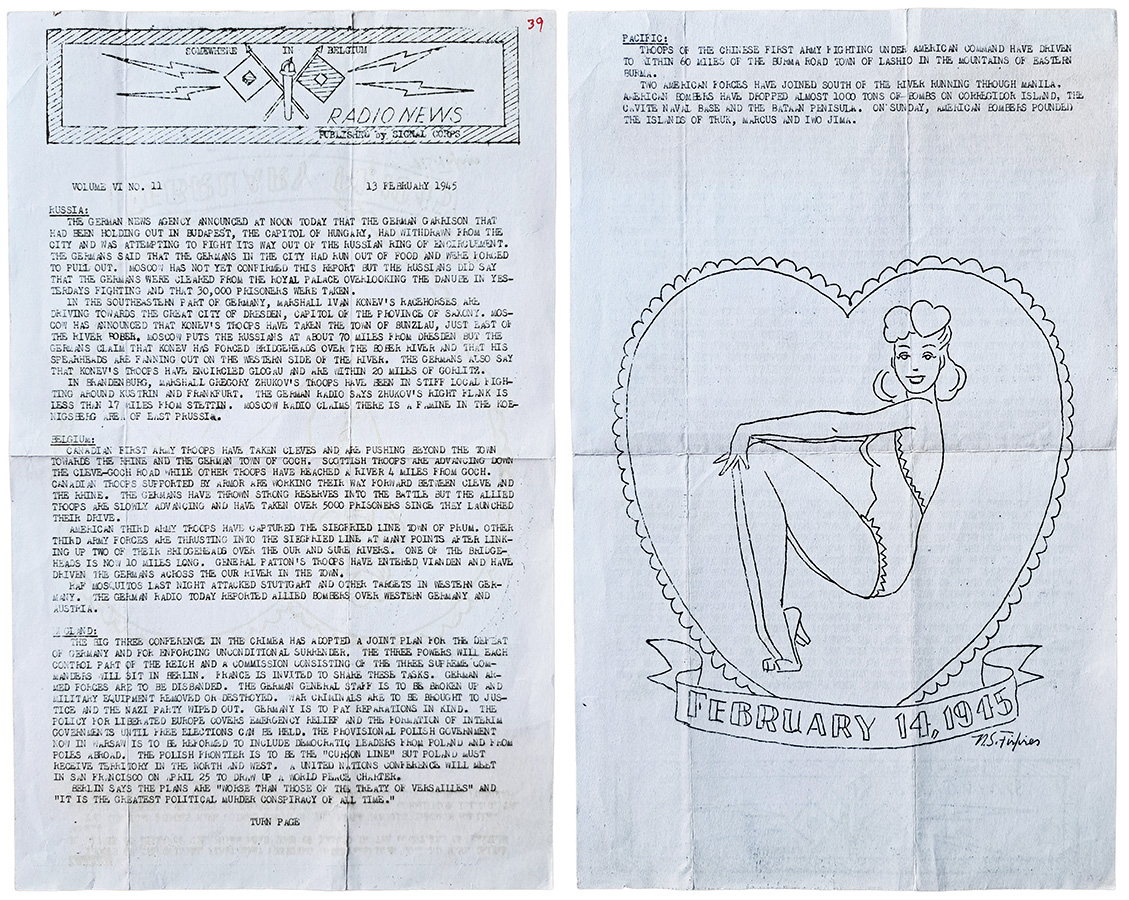 39
SOMEWHERE IN BELGIUM
RADIO NEWS
PUBLISHED by SIGNAL CORPS
VOLUME VI NO. 11 13 FEBRUARY 1945
RUSSIA:
THE GERMAN NEWS AGENCY ANNOUNCED AT NOON TODAY THAT THE GERMAN GARRISON THAT
HAD BEEN HOLDING OUT IN BUDAPEST, THE CAPITOL OF HUNGARY, HAD WITHDRAWN FROM THE
CITY AND WAS ATTEMPTING TO FIGHT ITS WAY OUT OF THE RUSSIAN RING OF ENCIRCLEMENT.
THE GERMANS SAID THAT THE GERMANS IN THE CITY HAD RUN OUT OF FOOD AND WERE FORCED
TO PULL OUT. MOSCOW HAS NOT YET CONFIRMED THIS REPORT BUT THE RUSSIANS DID SAY
THAT THE GERMANS WERE CLEARED FROM THE ROYAL PALACE OVERLOOKING THE DANUBE IN YES-
TERDAYS FIGHTING AND THAT 30,000 PRISONERS WERE TAKEN.
IN THE SOUTHEASTERN PART OF GERMANY, MARSHALL IVAN KONEV'S RACEHORSES ARE
DRIVING TOWARDS THE GREAT CITY OF DRESDEN, CAPITOL OF THE PROVINCE OF SAXONY. MOS-
COW HAS ANNOUNCED THAT KONEV'S TROOPS HAVE TAKEN THE TOWN OF BUNZLAU, JUST EAST OF
THE RIVER BOBER. MOSCOW PUTS THE RUSSIANS AT ABOUT 70 MILES FROM DRESDEN BUT THE
GERMANS CLAIM THAT KONEV HAS FORCED BRIDGEHEADS OVER THE BOBER RIVER AND THAT HIS
SPEARHEADS ARE FANNING OUT ON THE WESTERN SIDE OF THE RIVER. THE GERMANS ALSO SAY
THAT KONEV'S TROOPS HAVE ENCIRCLED GLOGAU AND ARE WITHIN 20 MILES OF GORLITZ.
IN BRANDENBURG, MARSHALL GREGORY ZHUKOV'S TROOPS HAVE BEEN IN STIFF LOCAL FIGH-
TING AROUND KUSTRIN AND FRANKFURT. THE GERMAN RADIO SAYS ZHUKOV'S RIGHT FLANK IS
LESS THAN 17 MILES FROM STETTIN. MOSCOW RADIO CLAIMS THERE IS A FAMINE IN THE KOE-
NIGSBERG AREA OF EAST PRUSSIA.
BELGIUM:
CANADIAN FIRST ARMY TROOPS HAVE TAKEN CLEVES AND ARE PUSHING BEYOND THE TOWN
TOWARDS THE RHINE AND THE GERMAN TOWN OF GOCH. SCOTTISH TROOPS ARE ADVANCING DOWN
THE CLEVE-GOCH ROAD WHILE OTHER TROOPS HAVE REACHED A RIVER 4 MILES FROM GOCH.
CANADIAN TROOPS SUPPORTED BY ARMOR ARE WORKING THEIR WAY FORWARD BETWEEN CLEVE AND
THE RHINE. THE GERMANS HAVE THROWN STRONG RESERVES INTO THE BATTLE BUT THE ALLIED
TROOPS ARE SLOWLY ADVANCING AND HAVE TAKEN OVER 5000 PRISONERS SINCE THEY LAUNCHED
THEIR DRIVE.
AMERICAN THIRD ARMY TROOPS HAVE CAPTURED THE SIEGFRIED LINE TOWN OF PRUM. OTHER
THIRD ARMY FORCES ARE THRUSTING INTO THE SIEGFRIED LINE AT MANY POINTS AFTER LINK-
ING UP TWO OF THEIR BRIDGEHEADS OVER THE OUR AND SURE RIVERS. ONE OF THE BRIDGE-
HEADS IS NOW 10 MILES LONG. GENERAL PATTON'S TROOPS HAVE ENTERED VIANDEN AND HAVE
DRIVEN THE GERMANS ACROSS THE OUR RIVER IN THE TOWN.
RAF MOSQUITOS LAST NIGHT ATTACKED STUTTGART AND OTHER TARGETS IN WESTERN GER-
MANY. THE GERMAN RADIO TODAY REPORTED ALLIED BOMBERS OVER WESTERN GERMANY AND
AUSTRIA.
ENGLAND:
THE BIG THREE CONFERENCE IN THE CRIMEA HAS ADOPTED A JOINT PLAN FOR THE DEFEAT
OF GERMANY AND FOR ENFORCING UNCONDITIONAL SURRENDER. THE THREE POWERS WILL EACH
CONTROL PART OF THE REICH AND A COMMISSION CONSISTING OF THE THREE SUPREME COM-
MANDERS WILL SIT IN BERLIN. FRANCE IS INVITED TO SHARE THESE TASKS. GERMAN AR-
MED FORCES ARE TO BE DISBANDED. THE GERMAN GENERAL STAFF IS TO BE BROKEN UP AND
MILITARY EQUIPMENT REMOVED OR DESTROYED. WAR CRIMINALS ARE TO BE BROUGHT TO JUS-
TICE AND THE NAZI PARTY WIPED OUT. GERMANY IS TO PAY REPARATIONS IN KIND. THE
POLICY FOR LIBERATED EUROPE COVERS EMERGENCY RELIEF AND THE FORMATION OF INTERIM
GOVERNMENTS UNTIL FREE ELECTIONS CAN BE HELD. THE PROVISIONAL POLISH GOVERNMENT
NOW IN WARSAW IS TO BE REFORMED TO INCLUDE DEMOCRATIC LEADERS FROM POLAND AND FROM
POLES ABROAD. THE POLISH FRONTIER IS TO BE THE "CURSON LINE" BUT POLAND MUST
RECEIVE TERRITORY IN THE NORTH AND WEST. A UNITED NATIONS CONFERENCE WILL MEET
IN SAN FRANCISCO ON APRIL 25 TO DRAW UP A WORLD PEACE CHARTER.
BERLIN SAYS THE PLANS ARE "WORSE THAN THOSE OF THE TREATY OF VERSAILLES" AND
"IT IS THE GREATEST POLITICAL MURDER CONSPIRACY OF ALL TIME."
TURN PAGE
PACIFIC:
TROOPS OF THE CHINESE FIRST ARMY FIGHTING UNDER AMERICAN COMMAND HAVE DRIVEN
TO WITHIN 60 MILES OF THE BURMA ROAD TOWN OF LASHIO IN THE MOUNTAINS OF EASTERN
BURMA.
TWO AMERICAN FORCES HAVE JOINED SOUTH OF THE RIVER RUNNING THROUGH MANILA.
AMERICAN BOMBERS HAVE DROPPED ALMOST 1000 TONS OF BOMBS ON CORREGIDOR ISLAND, THE
CAVITE NAVAL BASE AND THE BATAAN PENISULA. ON SUNDAY, AMERICAN BOMBERS POUNDED
THE ISLANDS OF TRUK, MARCUS AND IWO JIMA.
FEBRUARY 14, 1945